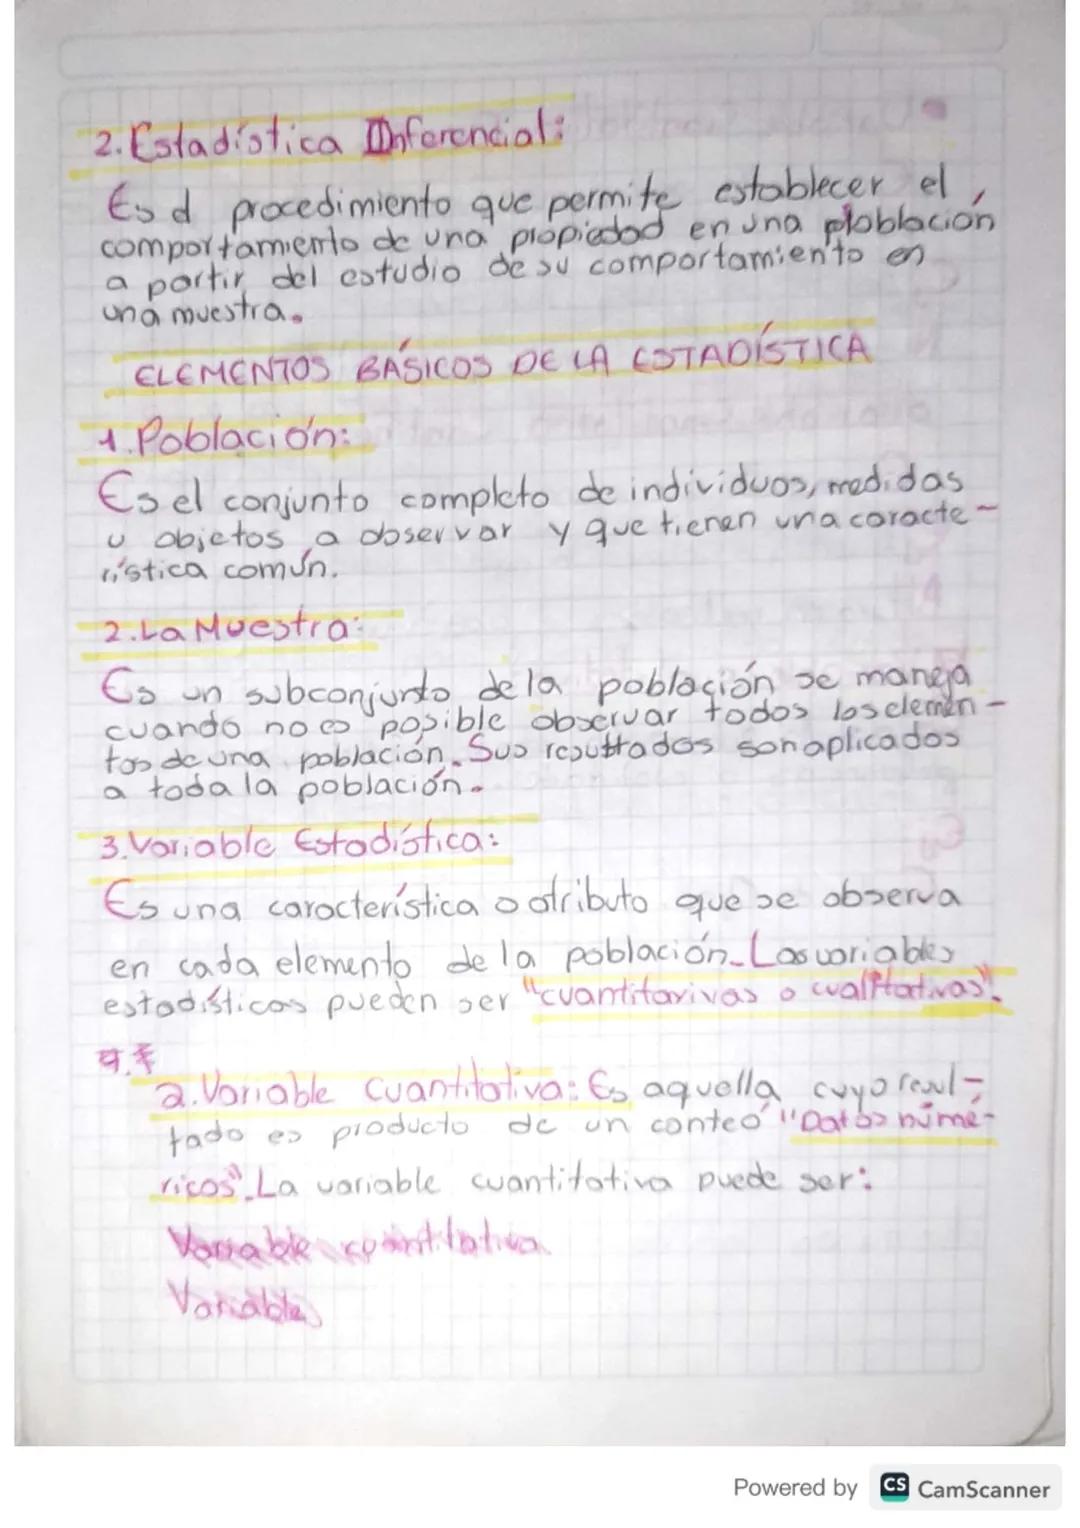 2. Estadística Inferencial:
Es el procedimiento que permite establecer el
comportamiento de una propiedad en una ploblación
a partir del estudio de su comportamiento en
una muestra.
ELEMENTOS BÁSICOS DE LA ESTADÍSTICA
1. Población:
Es el conjunto completo de individuos, medidas
u objetos a observar y que tienen una caracte-
rística común.
2. La Muestra:
Es un subconjunto de la población se maneja
cuando no es posible observar todos los elemen-
tos de una población. Sus resultados son aplicados
a toda la población.
3. Variable Estadística:
Es una característica o atributo que se observa
en cada elemento de la población. Las variables
estadísticas pueden ser "cuantitarivas o cualitativas".
a. Variable cuantitativa: Es aquella cuyo resul-
tado es producto de un conteo "Datos númé-
ricos". La variable cuantitativa puede ser:
Variable cuantitativa
Variable
Powered by CS CamScanner